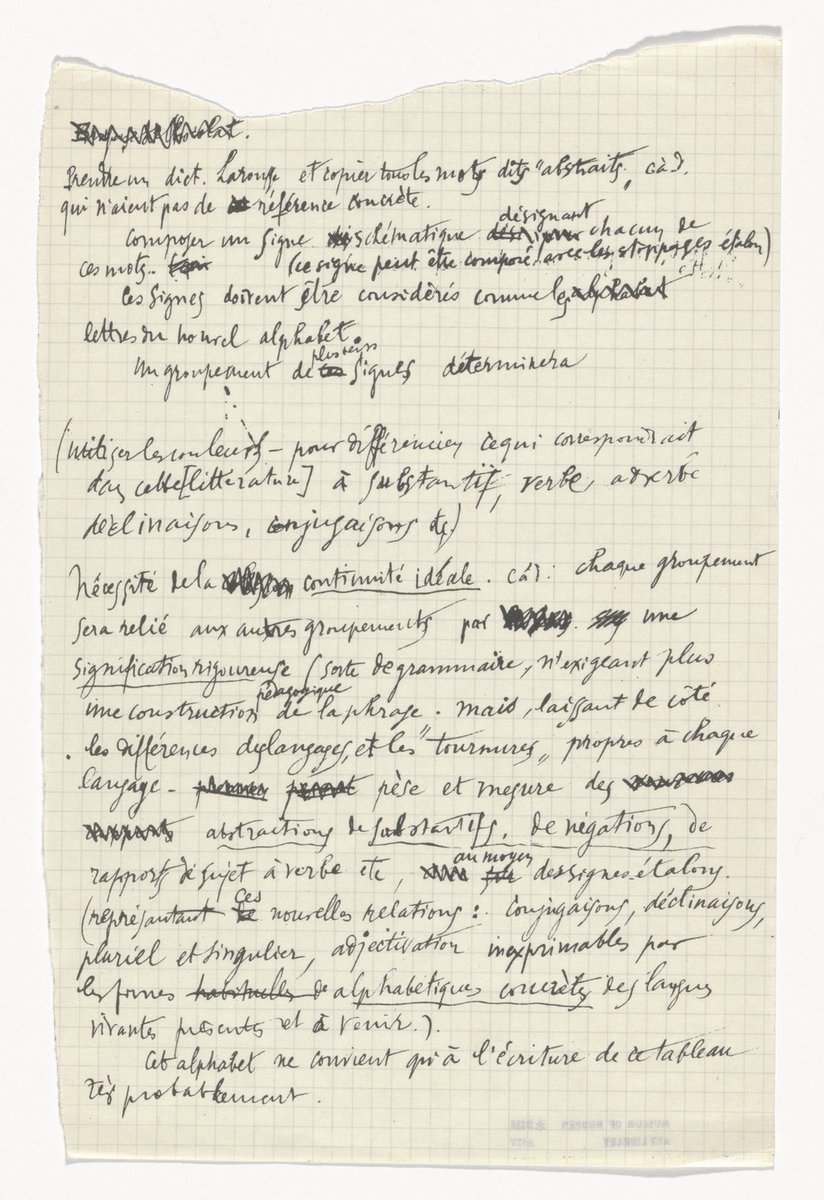 Prendre un dict. Larousse et copier tous les mots dits "abstraits", càd.
qui n'aient pas de référence concrète.
désignant
Composer un signe schématique chacun de
ces mots. (ce signe peut être composé avec les stoppages étalon)
Ces signes doivent être considérés comme les alphabet
lettres du nouvel alphabet
plusieurs
Un groupement de signes déterminera
(Utiliser les couleurs – pour différencier ce qui correspondrait
dans cette [littérature] à substantif, verbe, adverbe
déclinaisons, conjugaisons etc)
Nécessité de la continuité idéale. càd: chaque groupement
sera relié aux autres groupements par une
signification rigoureuse (sorte de grammaire, n'exigeant plus
pédagogique
une construction de la phrase. mais, laissant de côté
les différences des langages, et les "tournures" propres à chaque
langage – pèse et mesure des
abstractions de substantifs, de négations, de
au moyen
rapports de sujet à verbe etc, des signes-étalons.
ces
(représentant nouvelles relations: conjugaisons, déclinaisons,
pluriel et singulier, adjectivation inexprimables par
les formes habituelles de alphabétiques concrètes des langues
vivantes présentes et à venir.).
Cet alphabet ne convient qu'à l'écriture de ce tableau
très probablement.